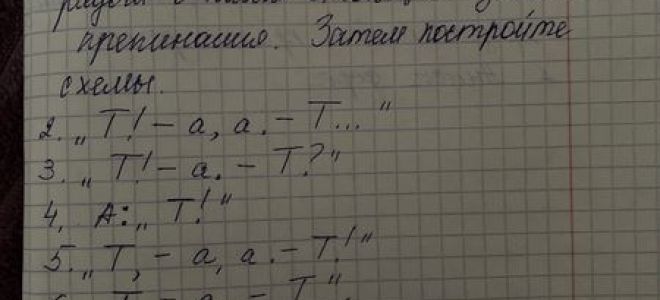 препинания. Затем постройте
схемы.
2. „ Т! – а, а. – Т... "
3. „ Т! – а. – Т? "
4, А: „ Т! "
5. „ Т, – а, а. – Т! "